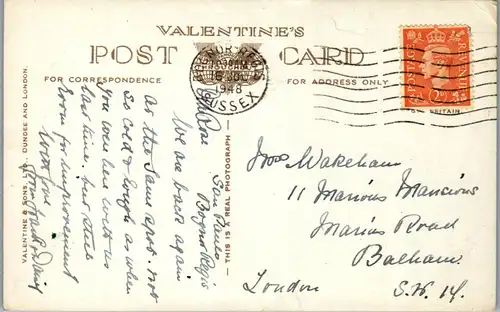 VALENTINE'S
POST CARD
FOR CORRESPONDENCE
FOR ADDRESS ONLY
BOGNOR REGIS
1948
SUSSEX
POSTAGE
REVENUE
VALENTINE & SONS, LTD. DUNDEE AND LONDON.
THIS IS A REAL PHOTOGRAPH
San Paulo
Bognor Regis
We are back again
at the same spot. not
so cold & rough as when
you were here with us
last time. but still
room for improvement
with love
from
Mrs Wakeham
11 Marius Mansions
Marius Road
Balham
London S.W.17.